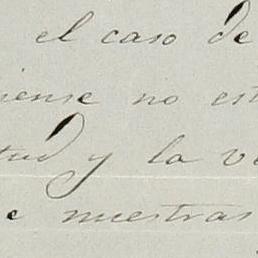 el caso de
iense no est
tud y la ve
e nuestras